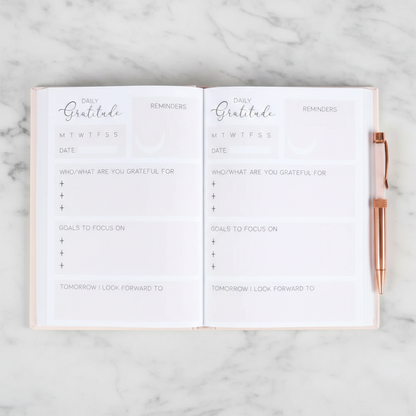 DAILY
Gratitude
REMINDERS
M T W T F S S
DATE:
WHO/WHAT ARE YOU GRATEFUL FOR
+
+
+
GOALS TO FOCUS ON
+
+
+
TOMORROW I LOOK FORWARD TO
DAILY
Gratitude
REMINDERS
M T W T F S S
DATE:
WHO/WHAT ARE YOU GRATEFUL FOR
+
+
+
GOALS TO FOCUS ON
+
+
+
TOMORROW I LOOK FORWARD TO